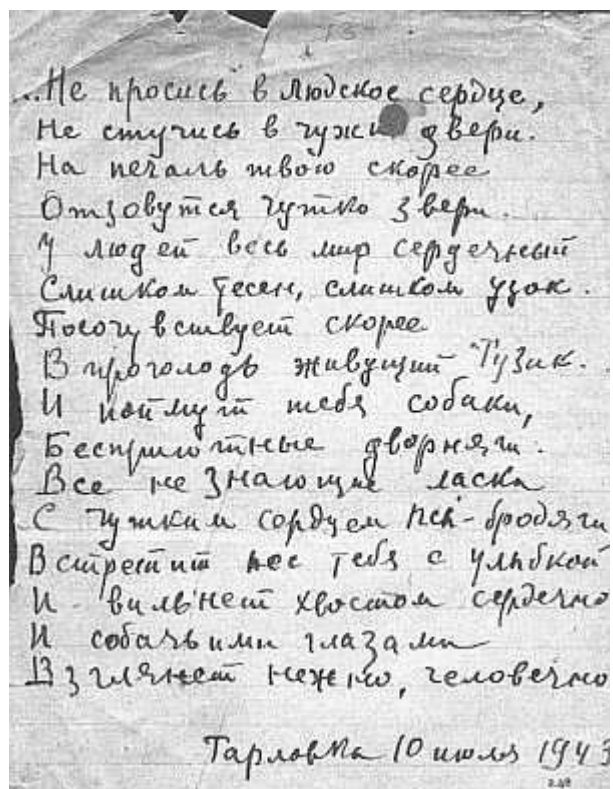 ...Не просись в людское сердце,
Не стучись в чужие двери.
На печаль твою скорее
Отзовутся чутко звери.
У людей весь мир сердечный
Слишком тесен, слишком узок.
Посочувствует скорее
В проголодь живущий "Тузик".
И поймут тебя собаки,
Бесприютные дворняги.
Все не знающие ласки
С чутким сердцем псы-бродяги
Встретит пес тебя с улыбкой
И вильнет хвостом сердечно
И собачьими глазами
Взглянет нежно, человечно
Тарловка 10 июля 1943